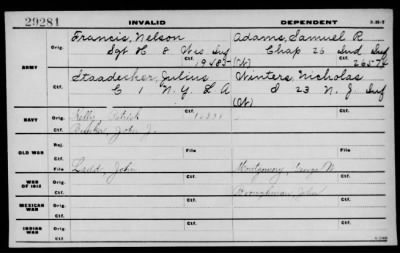 29281 INVALID DEPENDENT
ARMY
Orig. Francis, Nelson Adams, Samuel R.
Sgt H 8 Wis. Inf Chap 26 Ind Inf
Ctf. (W)
Orig. Staadecker, Julius Winters, Nicholas
C 1 N. Y. L A I 23 N. J. Inf
Ctf. (W)
NAVY
Orig. Kelly, Patrick
Ctf. John J.
OLD WAR
Rej.
Ctf. File File
File Ladd, John Montgomery, George W.
WAR OF 1812
Orig.
Ctf. John
MEXICAN WAR
Orig.
Ctf.
INDIAN WAR
Orig.
Ctf.